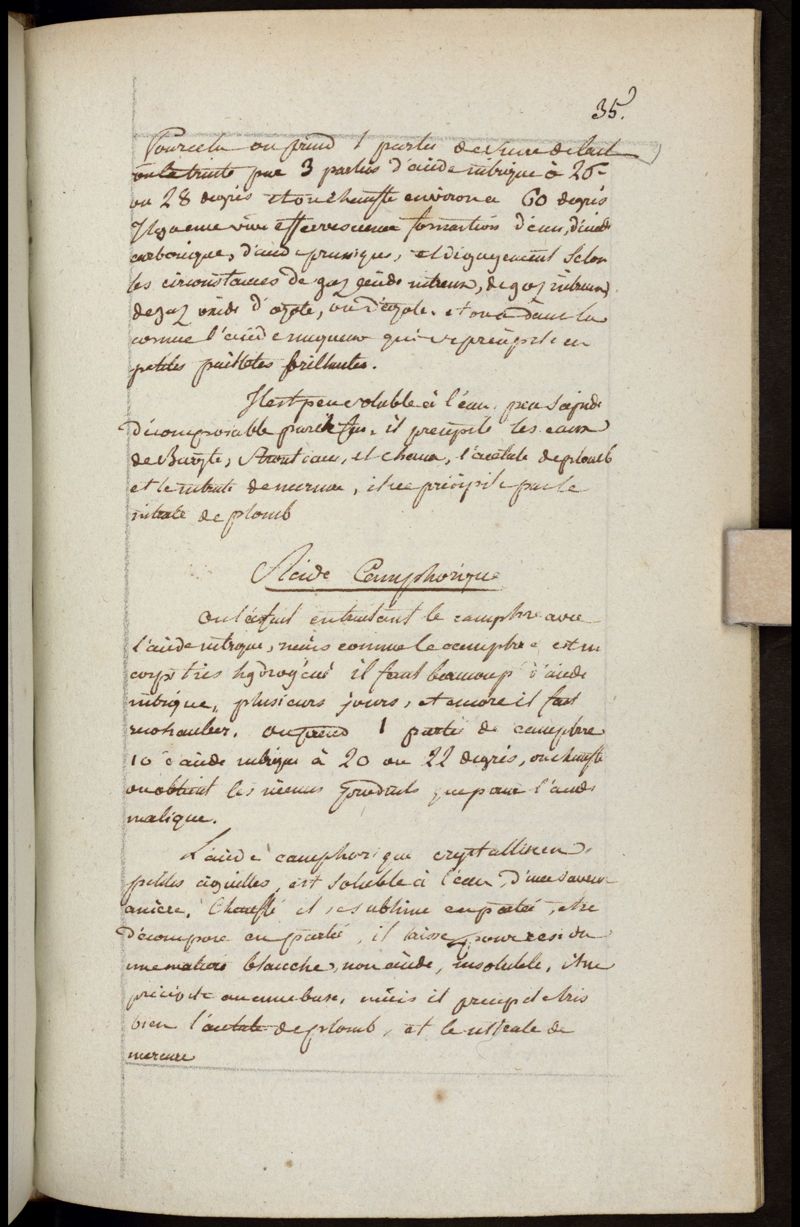 35.
Pour cela on prend 1 partie de sucre de lait
on le traite par 3 parties d'acide nitrique à 26
ou 28 degrés et on chauffe environ a 60 degrés
Il y a une vive effervescence formation d'eau, d'acide
carbonique, d'acide prussique, et dégagement selon
les circonstances de gaz acide nitreux, de gaz nitreux
de gaz oxide d'azote, ou d'azote. et on a dans la
cornue l'acide muqueux qui se precipite en
petites paillettes brillantes.
Il est peu soluble à l'eau, peu sapide
décomposable par le feu. il precipite les eaux
de Baryte, Strontiane, et chaux, l'acetate de plomb
et le nitrate de mercure, il se précipite par le
nitrate de plomb
Acide Camphorique
on l'a fait en traitant le camphre avec
l'acide nitrique, mais comme le camphre est un
corps très hydrogéné il faut beaucoup d'acide
nitrique, plusieurs jours, et encore il faut
rechauffer. on prend 1 partie de camphre
10 d'acide nitrique à 20 ou 22 degrés, on chauffe
on obtient les mêmes produits que pour l'acide
malique.
L'acide camphorique crystallise en
petites aiguilles, est soluble à l'eau, d'une saveur
amère. Chauffé il se sublime en partie, et se
décompose en partie, il laisse pour residu
une matiere blanche, non acide, insoluble, il ne
précipite aucune base, mais il precipite tres
bien l'acetate de plomb, et le nitrate de
mercure